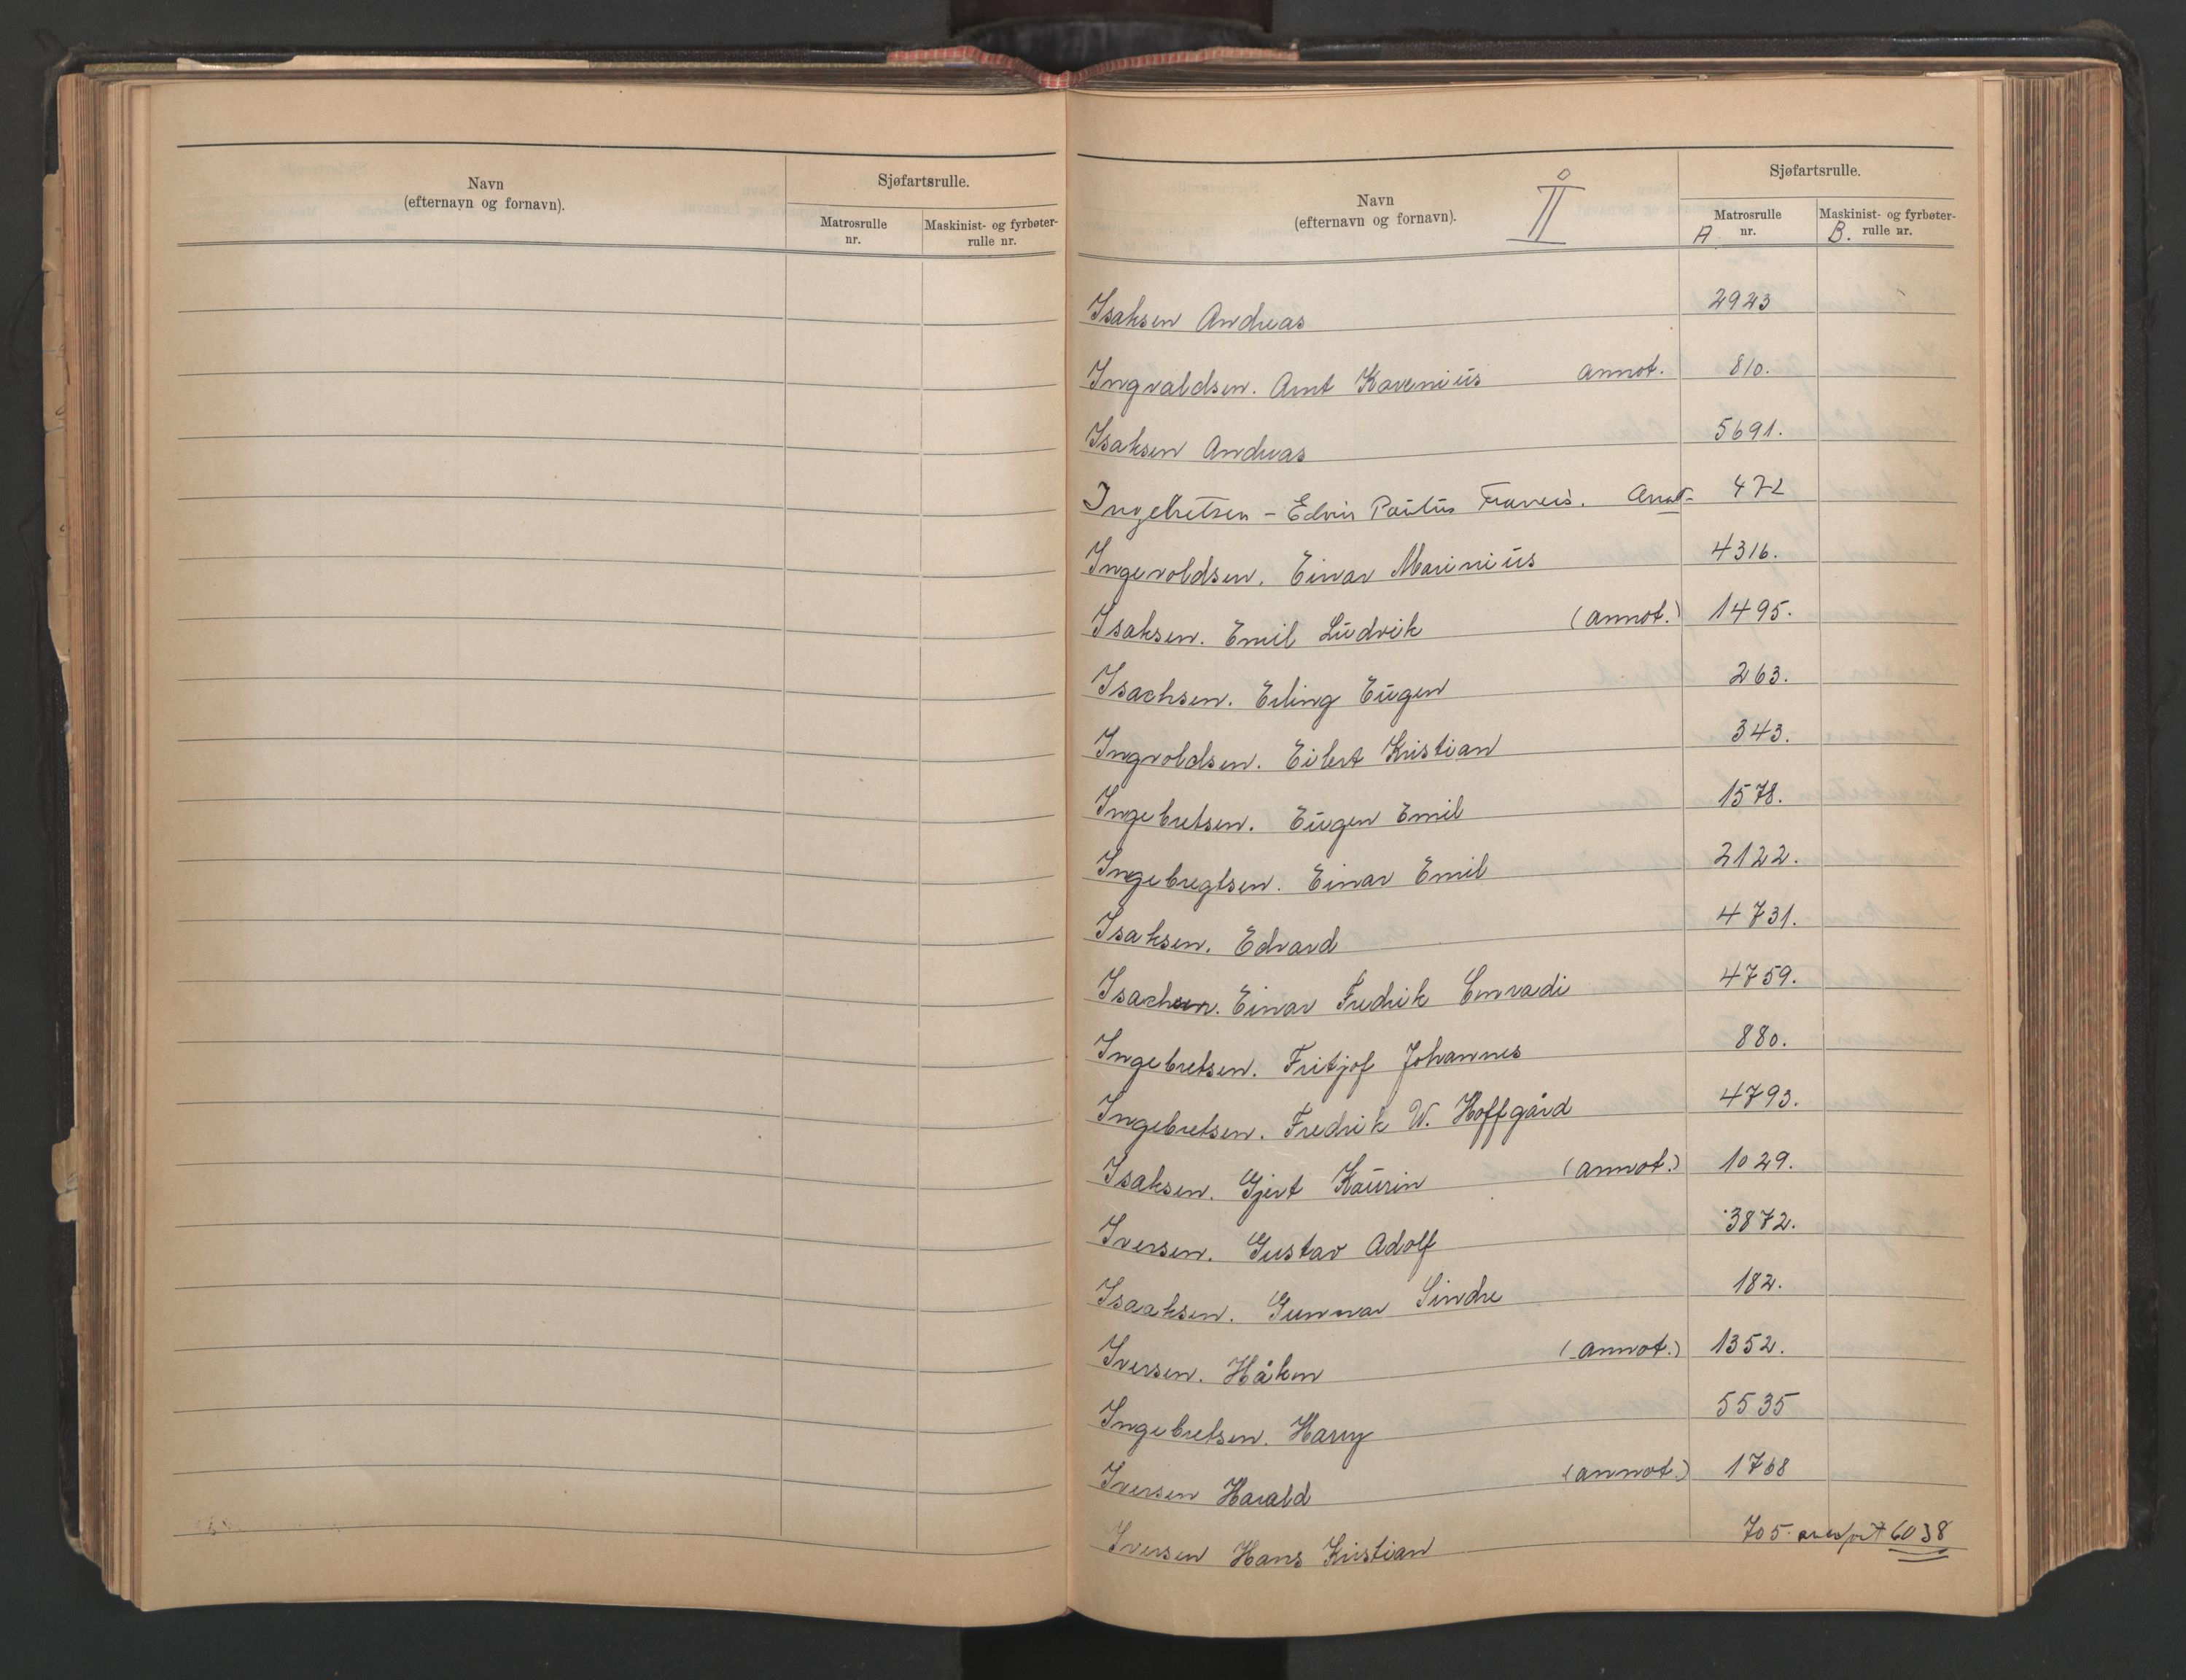 Navn
(efternavn og fornavn).
Sjøfartsrulle.
Matrosrulle
nr.
Maskinist- og fyrbøter-
rulle nr.
Navn
(efternavn og fornavn).
I
Sjøfartsrulle.
Matrosrulle
A nr.
Maskinist- og fyrbøter-
B. rulle nr.
Isaksen Andreas 2923
Ingvaldsen. Arnt Karenius annot. 810.
Isaksen Andreas 5691.
Ingebretsen - Edvin Paulus Francis. Annot- 472
Ingevoldsen. Einar Marinius 4316.
Isaksen. Emil Ludvik (annot.) 1495.
Isachsen. Erling Eugen 263.
Ingvoldsen. Eilert Kristian 343.
Ingebretsen. Eugen Emil 1578.
Ingebregtsen. Einar Emil 2122.
Isaksen. Edvard 4731.
Isachsen. Einar Fredrik Conradi 4759.
Ingebretsen. Fritjof Johannes 880.
Ingebretsen. Fredrik W. Hoffgård 4793.
Isaksen. Gjert Kaurin (annot.) 1029.
Iversen. Gustav Adolf 3872.
Isaaksen. Gunnar Sindre 182.
Iversen. Håkon (annot.) 1352.
Ingebretsen. Harry 5535
Iversen Harald (annot.) 1768
Iversen Hans Kristian 705. 6038